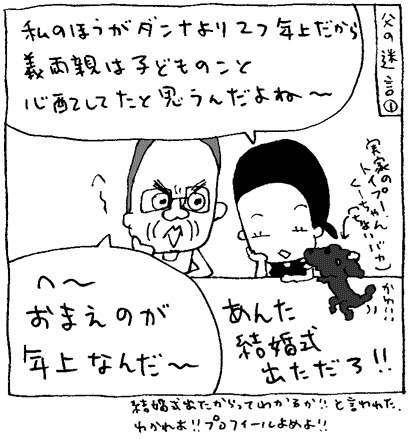 父の迷言①
私のほうがダンナより2つ年上だから
義両親は子どものこと
心配してたと思うんだよね〜
実家の
トイプー
くーちゃん
かわ!!
へ〜
おまえのが
年上なんだ〜
あんた
結婚式
出ただろ!!
結婚式出たからってわかるか!!と言われた。
わかれよ!!プロフィールよめよ!!